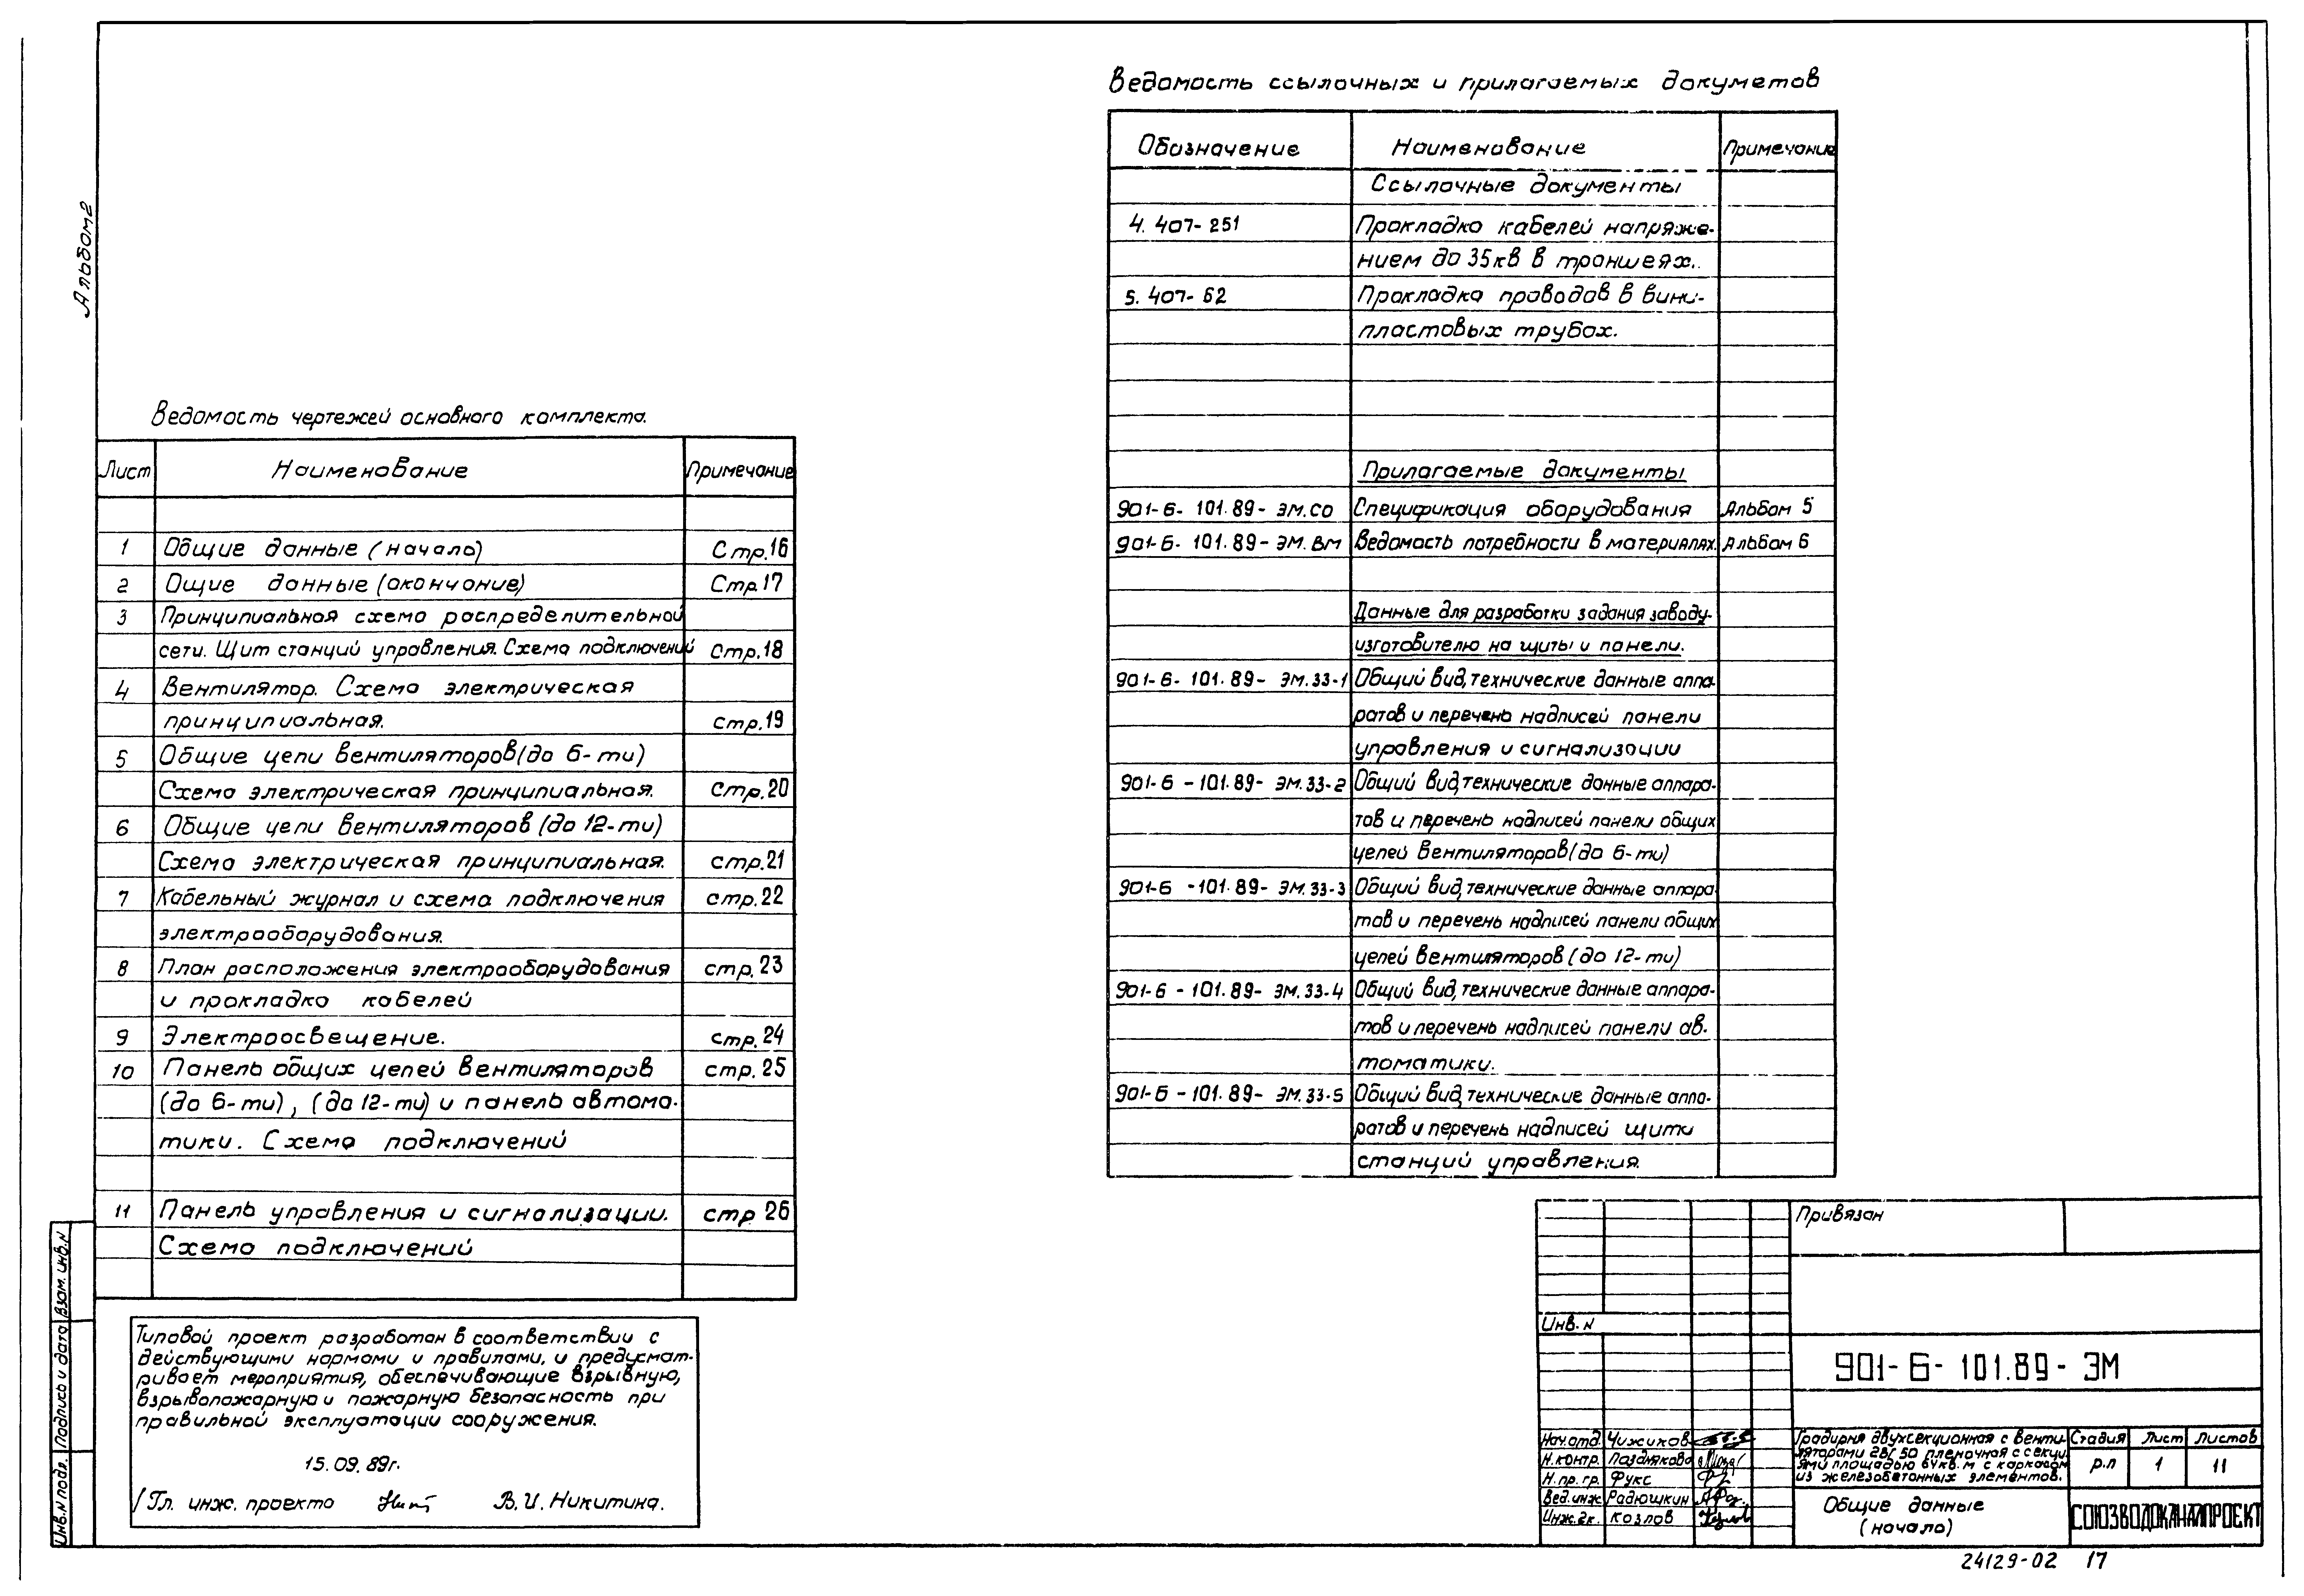 Альбом2
Ведомость чертежей основного комплекта.
Лист Наименование Примечание
1 Общие данные (начало) Стр.16
2 Ощие данные (окончание) Стр.17
3 Принципиальная схема распределительной
сети. Щит станций управления. Схема подключений Стр.18
4 Вентилятор. Схема электрическая
принципиальная. стр.19
5 Общие цепи вентиляторов (до 6-ти)
Схема электрическая принципиальная. Стр.20
6 Общие цепи вентиляторов (до 12-ти)
Схема электрическая принципиальная. стр.21
7 Кабельный журнал и схема подключения стр.22
электрооборудования.
8 План расположения электрооборудования стр.23
и прокладка кабелей
9 Электроосвещение. стр.24
10 Панель общих цепей вентиляторов стр.25
(до 6-ти), (до 12-ти) и панель автома-
тики. Схема подключений
11 Панель управления и сигнализации. стр 26
Схема подключений
Типовой проект разработан в соответствии с
действующими нормами и правилами, и предусмат-
ривает мероприятия, обеспечивающие взрывную,
взрывопожарную и пожарную безопасность при
правильной эксплуатации сооружения.
15.09.89г.
/Гл. инж. проекта В.И. Никитина.
Ведомость ссылочных и прилагаемых докуметов
Обозначение Наименование Примечание
Ссылочные документы
4.407-251 Прокладка кабелей напряже-
нием до 35кв в траншеях.
5.407-62 Прокладка проводов в вини-
пластовых трубах.
Прилагаемые документы
901-6-101.89-ЭМ.СО Спецификация оборудования Альбом 5
901-6-101.89-ЭМ.ВМ Ведомость потребности в материалах. Альбом 6
Данные для разработки задания заводу-
изготовителю на щиты и панели.
901-6-101.89-ЭМ.33-1 Общий вид, технические данные аппа-
ратов и перечень надписей панели
управления и сигнализации
901-6-101.89-ЭМ.33-2 Общий вид, технические данные аппара-
тов и перечень надписей панели общих
цепей вентиляторов (до 6-ти)
901-6-101.89-ЭМ.33-3 Общий вид, технические данные аппара
тов и перечень надписей панели общих
цепей вентиляторов (до 12-ти)
901-6-101.89-ЭМ.33-4 Общий вид, технические данные аппара-
тов и перечень надписей панели ав-
томатики.
901-6-101.89-ЭМ.33-5 Общий вид, технические данные аппа-
ратов и перечень надписей щита
станций управления.
Привязан
Инв. N
901-6-101.89-ЭМ
Нач.отд. Чижиков
Н.контр. Позднякова
Н.пр.гр. Фукс
Вед.инж Радюшкин
Инж.2к. Козлов
Градирня двухсекционная с венти-
ляторами 2ВГ50 пленочная с секци-
ями площадью 64кв.м с каркасом
из железобетонных элементов.
Стадия Лист Листов
р.п 1 11
Общие данные
(начало)
СОЮЗВОДОКАНАЛПРОЕКТ
24129-02 17
Инв.N подл. Подпись и дата Взам. инв.N